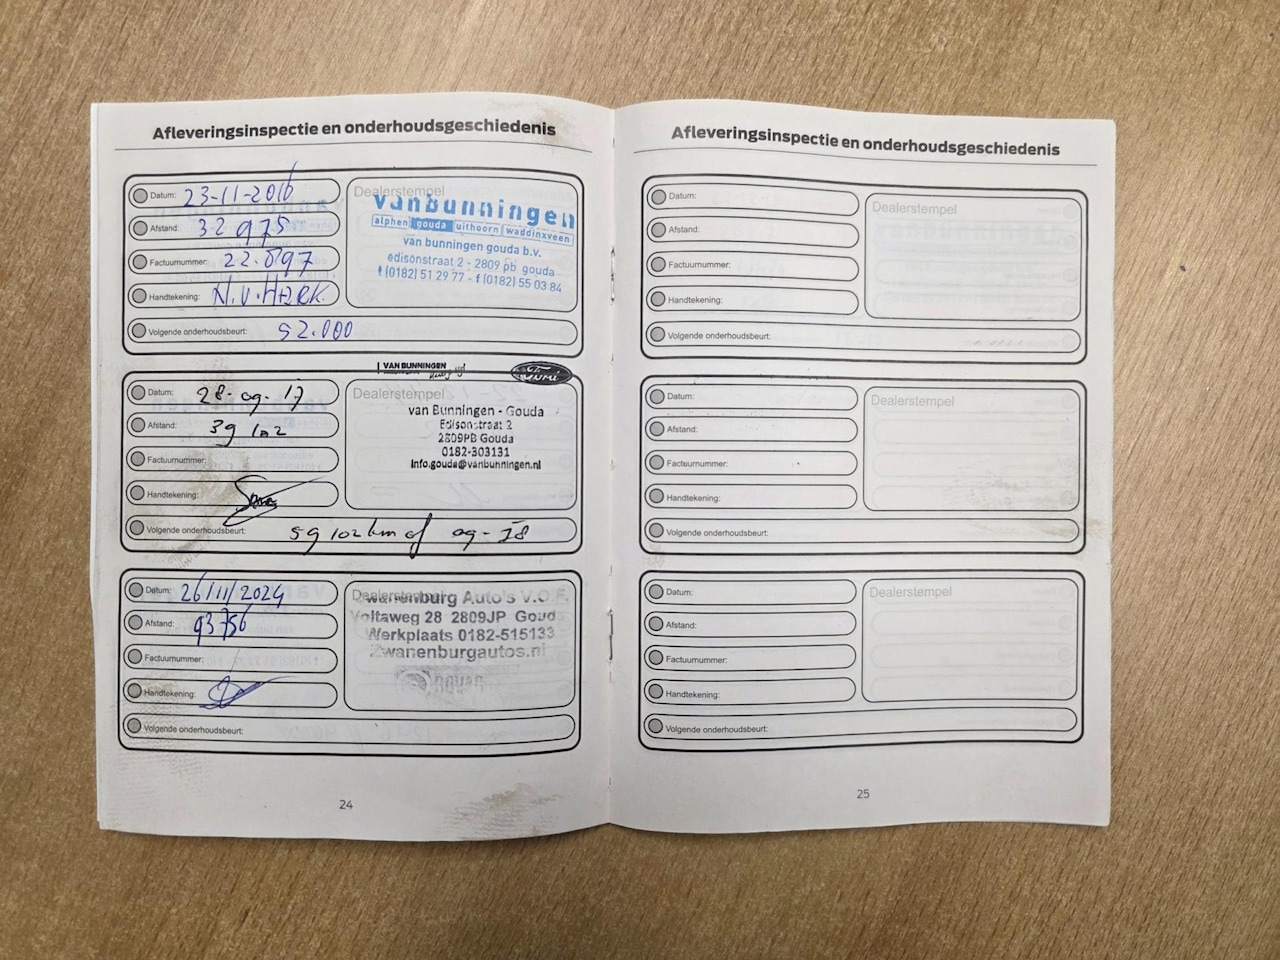 Afleveringsinspectie en onderhoudsgeschiedenis
Datum: 23-11-2016
Afstand: 32975
Factuurnummer: 22.097
Handtekening: N.v.Herk
Volgende onderhoudsbeurt: 52.000
Dealerstempel
vanbunningen
alphen gouda uithoorn waddinxveen
van bunningen gouda b.v.
edisonstraat 2 - 2809 pb gouda
t (0182) 51 29 77 - f (0182) 55 03 84
Datum: 28-09-17
Afstand: 39 102
Factuurnummer:
Handtekening:
Volgende onderhoudsbeurt: 59 102 km of 09-18
VAN BUNNINGEN
Ford
Dealerstempel
van Bunningen - Gouda
Edisonstraat 2
2809PB Gouda
0182-303131
info.gouda@vanbunningen.nl
Datum: 26/11/2024
Afstand: 93756
Factuurnummer:
Handtekening:
Volgende onderhoudsbeurt:
Dealerstempel
Zwanenburg Auto's V.O.F.
Voltaweg 28 2809JP Goud
Werkplaats 0182-515133
Zwanenburgautos.nl
BOVAG
24
Afleveringsinspectie en onderhoudsgeschiedenis
Datum:
Afstand:
Factuurnummer:
Handtekening:
Volgende onderhoudsbeurt:
Dealerstempel
Datum:
Afstand:
Factuurnummer:
Handtekening:
Volgende onderhoudsbeurt:
Dealerstempel
Datum:
Afstand:
Factuurnummer:
Handtekening:
Volgende onderhoudsbeurt:
Dealerstempel
25